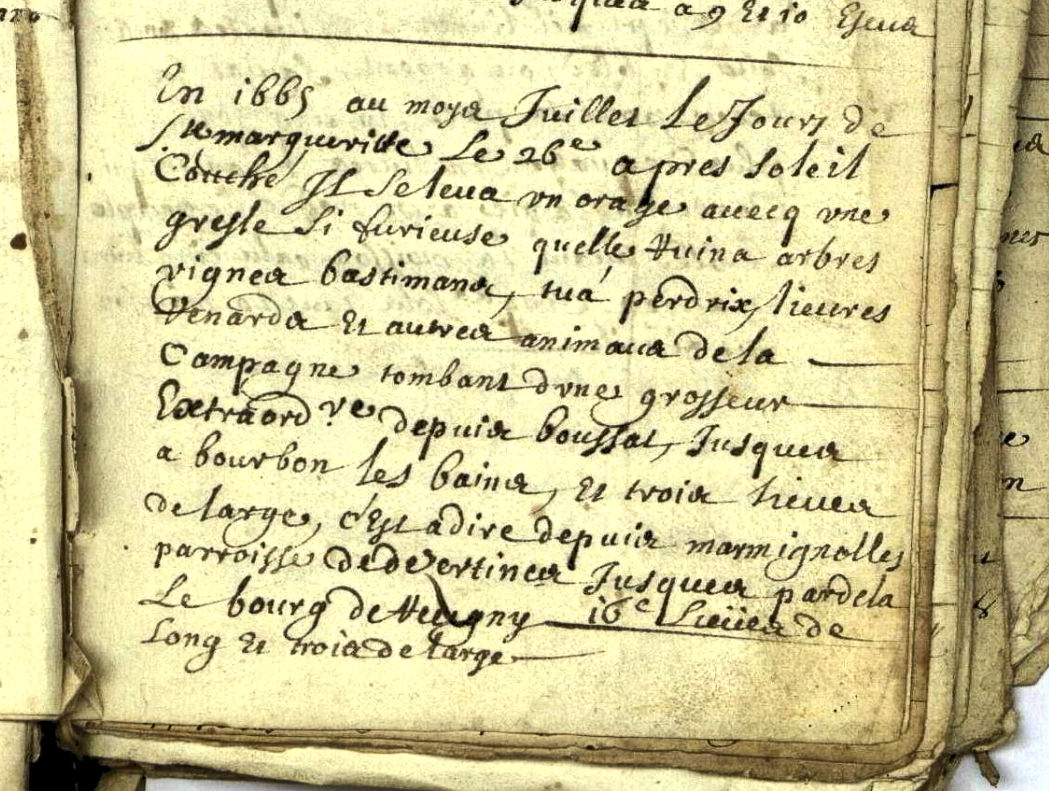 a 9 Et 10 Escus
En 1665 au moys Juillet Le Jours de
Ste margueritte Le 26e apres soleil
Couché Il se leva un orage avecq une
gresle si furieuse quelle Ruina arbres
vignes bastimans, tuá perdrix, lievres
Renards Et autres animaus de la
Campagne tombant dune grosseur
Extraord.re depuis boussat, Jusques
a bourbon les bains, Et trois lieues
de large, c'Est adire depuis marmignolles
parroisse de devertines Jusques pardela
Le bourg de Reugny 16e Lieües de
Long Et trois de large